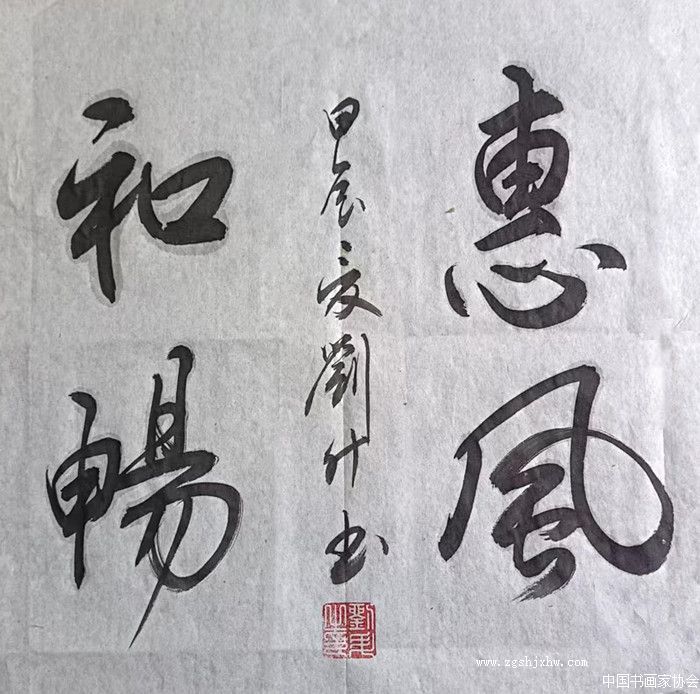 惠風
和暢
甲辰之夏劉什书
www.zgshjxhw.com
中国书画家协会